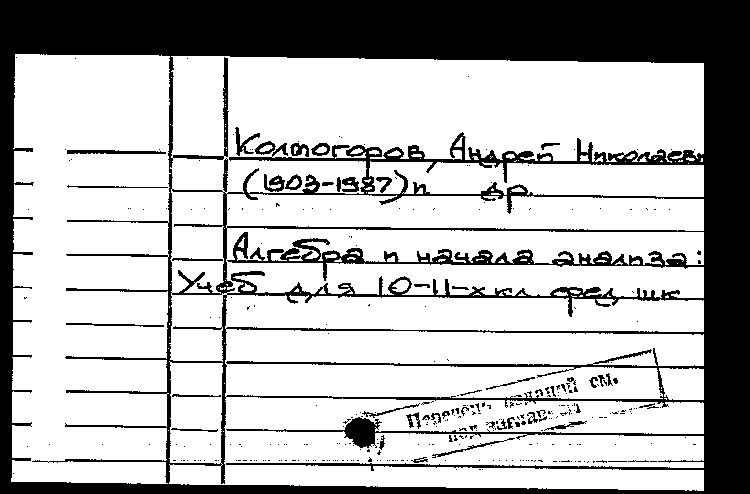 Колмогоров, Андрей Николаеви
(1903-1987) и др.
Алгебра и начала анализа:
Учеб для 10-11-х кл. сред. шк.
Перечень изданий см.
под заглавием